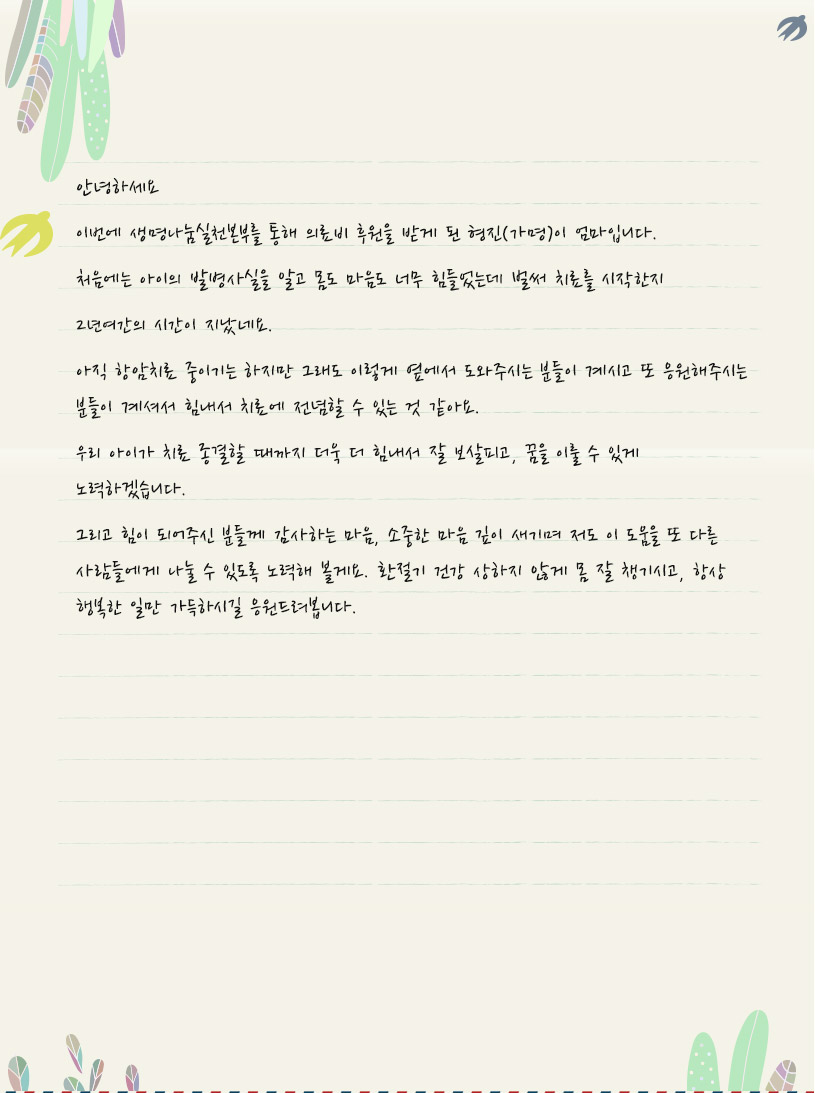 안녕하세요
이번에 생명나눔실천본부를 통해 의료비 후원을 받게 된 형진(가명)이 엄마입니다.
처음에는 아이의 발병사실을 알고 몸도 마음도 너무 힘들었는데 벌써 치료를 시작한지
2년여간의 시간이 지났네요.
아직 항암치료 중이기는 하지만 그래도 이렇게 옆에서 도와주시는 분들이 계시고 또 응원해주시는
분들이 계셔서 힘내서 치료에 전념할 수 있는 것 같아요.
우리 아이가 치료 종결할 때까지 더욱 더 힘내서 잘 보살피고, 꿈을 이룰 수 있게
노력하겠습니다.
그리고 힘이 되어주신 분들께 감사하는 마음, 소중한 마음 깊이 새기며 저도 이 도움을 또 다른
사람들에게 나눌 수 있도록 노력해 볼게요. 환절기 건강 상하지 않게 몸 잘 챙기시고, 항상
행복한 일만 가득하시길 응원드려봅니다.